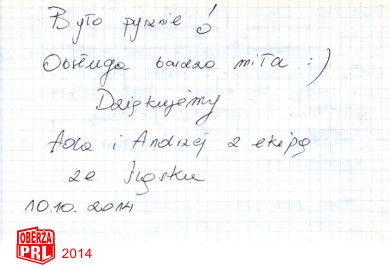 Było pysznie!
Obsługa bardzo miła :)
Dziękujemy
Ada i Andrzej z ekipą
ze Śląska
10.10.2014
OBERŻA
PRL 2014